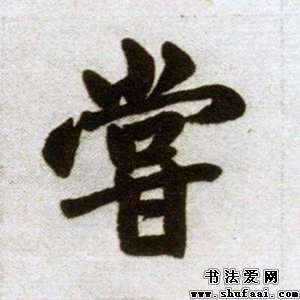 甞
书法爱网
www.shufaai.com